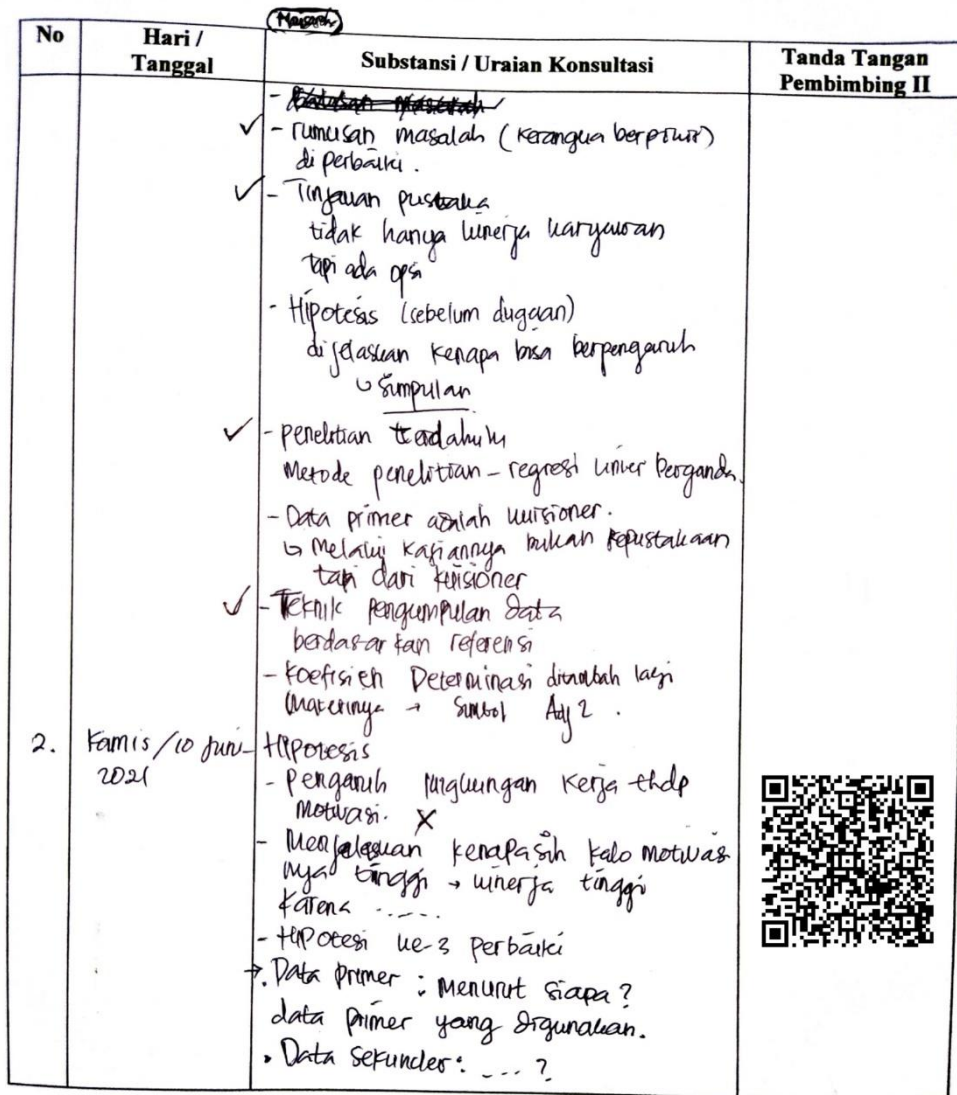 No
Hari /
Tanggal
Substansi / Uraian Konsultasi
Tanda Tangan
Pembimbing II
- rumusan masalah (kerangka berpikir)
di perbaiki.
- Tinjauan pustaka
tidak hanya kinerja karyawan
tapi ada opsi
- Hipotesis (sebelum dugaan)
di jelaskan kenapa bisa berpengaruh
↳ Simpulan
- penelitian terdahulu
Metode penelitian - regresi linier berganda.
- Data primer adalah kuisioner.
↳ Melalui kajiannya bukan kepustakaan
tapi dari kuisioner
- Teknik pengumpulan data
berdasarkan referensi
- Koefisien Determinasi ditambah lagi
materinya → Simbol Adj 2.
2.
Kamis/10 Juni
2021
- Hipotesis
- Pengaruh lingkungan kerja thdp
motivasi. X
- Menjelaskan kenapa sih kalo motivas
nya tinggi → kinerja tinggi
karena .....
- Hipotesi ke-3 perbaiki
→. Data primer : Menurut siapa?
data primer yang digunakan.
• Data sekunder : ....?